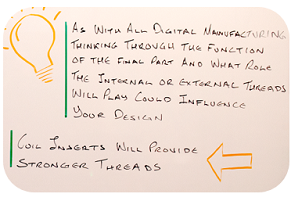 As With All Digital Manufacturing
Thinking Through the Function
of the Final Part And What Role
The Internal or External Threads
Will Play Could Influence
Your Design
Coil Inserts Will Provide
Stronger Threads